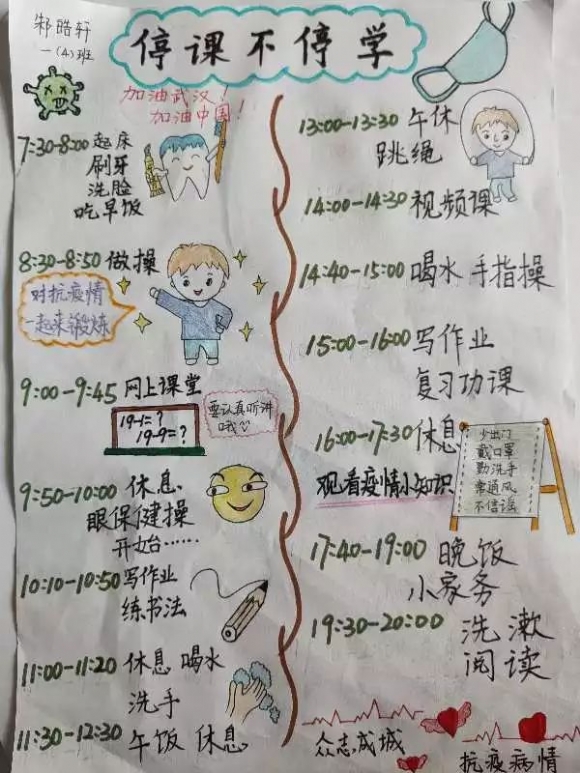 邾皓轩
一(4)班
停课不停学
加油武汉!
加油中国!
7:30-8:00 起床
刷牙
洗脸
吃早饭
8:30-8:50 做操
对抗疫情
一起来锻炼
9:00-9:45 网上课堂
19-1=?
19-9=?
要认真听讲
哦
9:50-10:00 休息
眼保健操
开始……
10:10-10:50 写作业
练书法
11:00-11:20 休息 喝水
洗手
11:30-12:30 午饭 休息
13:00-13:30 午休
跳绳
14:00-14:30 视频课
14:40-15:00 喝水 手指操
15:00-16:00 写作业
复习功课
16:00-17:30 休息
观看疫情小知识
少出门
戴口罩
勤洗手
常通风
不信谣
17:40-19:00 晚饭
小家务
19:30-20:00 洗漱
阅读
众志成城
抗疫病情